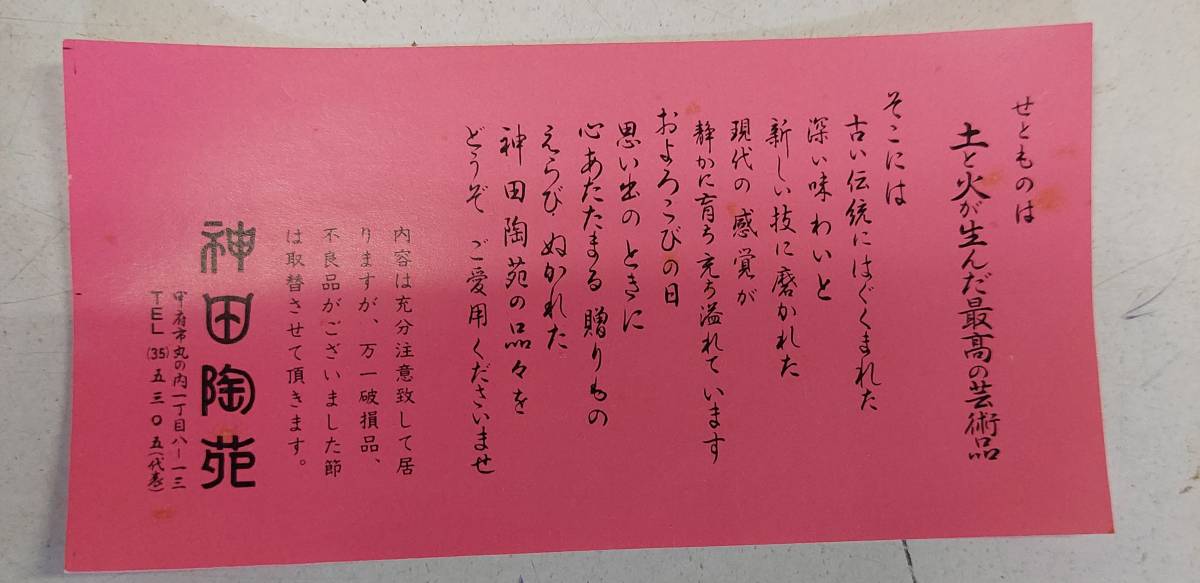 せとものは
土と火が生んだ最高の芸術品
そこには
古い伝統にはぐくまれた
深い味わいと
新しい技に磨かれた
現代の感覚が
静かに育ち充ち溢れています
およろこびの日
思い出のときに
心あたたまる贈りもの
えらびぬかれた
神田陶苑の品々を
どうぞ ご愛用くださいませ
内容は充分注意致して居
りますが、万一破損品、
不良品がございました節
は取替させて頂きます。
神田陶苑
甲府市丸の内一丁目八ー一三
TEL(35)五三〇五(代表)